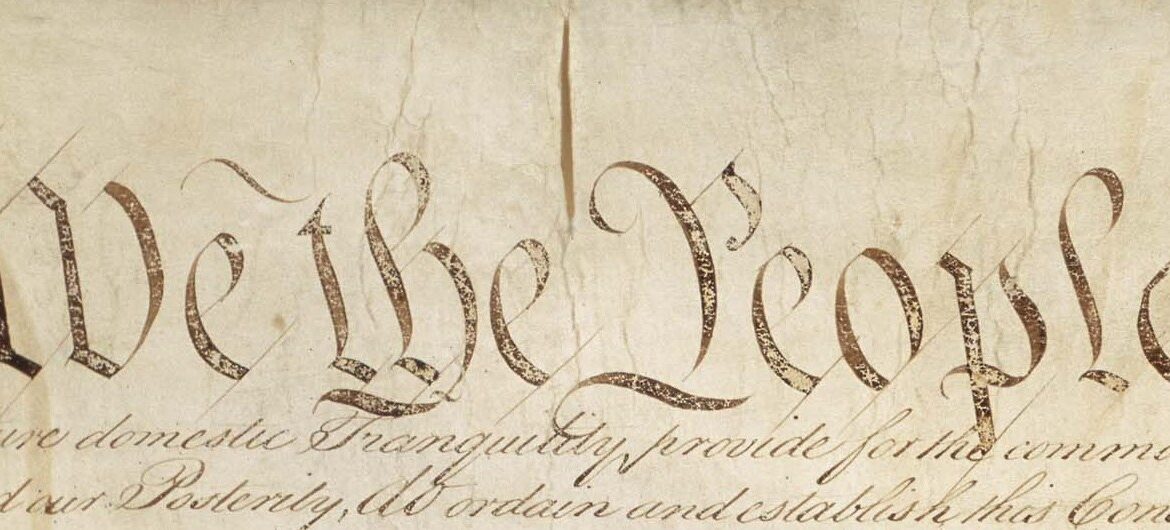 We the People
ure domestic Tranquility, provide for the commo
d our Posterity, do ordain and establish this Con